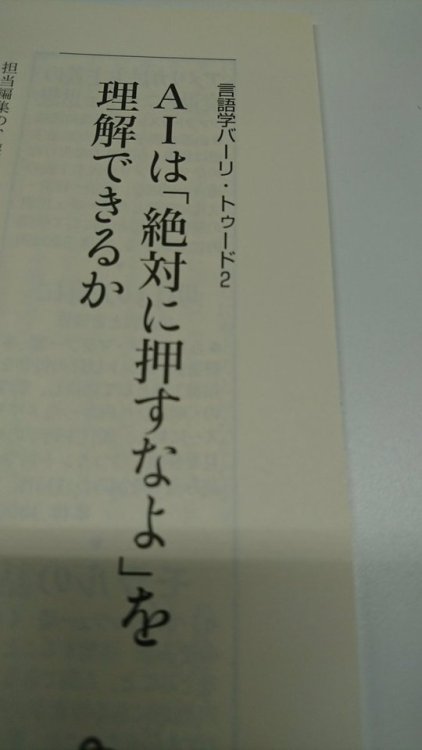 言語学バーリ・トゥード2
AIは「絶対に押すなよ」を
理解できるか
担当編集の